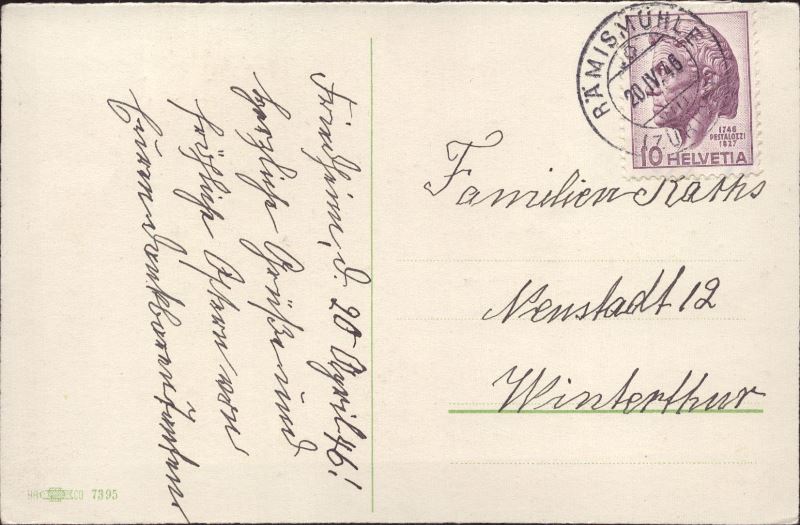 Friedheim, d. 20 April 46!
herzliche Grüße und
fröhliche Ostern von
Eurem dankbaren
RÄMISMÜHLE
20.IV.46
(ZÜRICH)
1746
PESTALOZZI
1827
10 HELVETIA
Familien Raths
Neustadt 12
Winterthur
7395